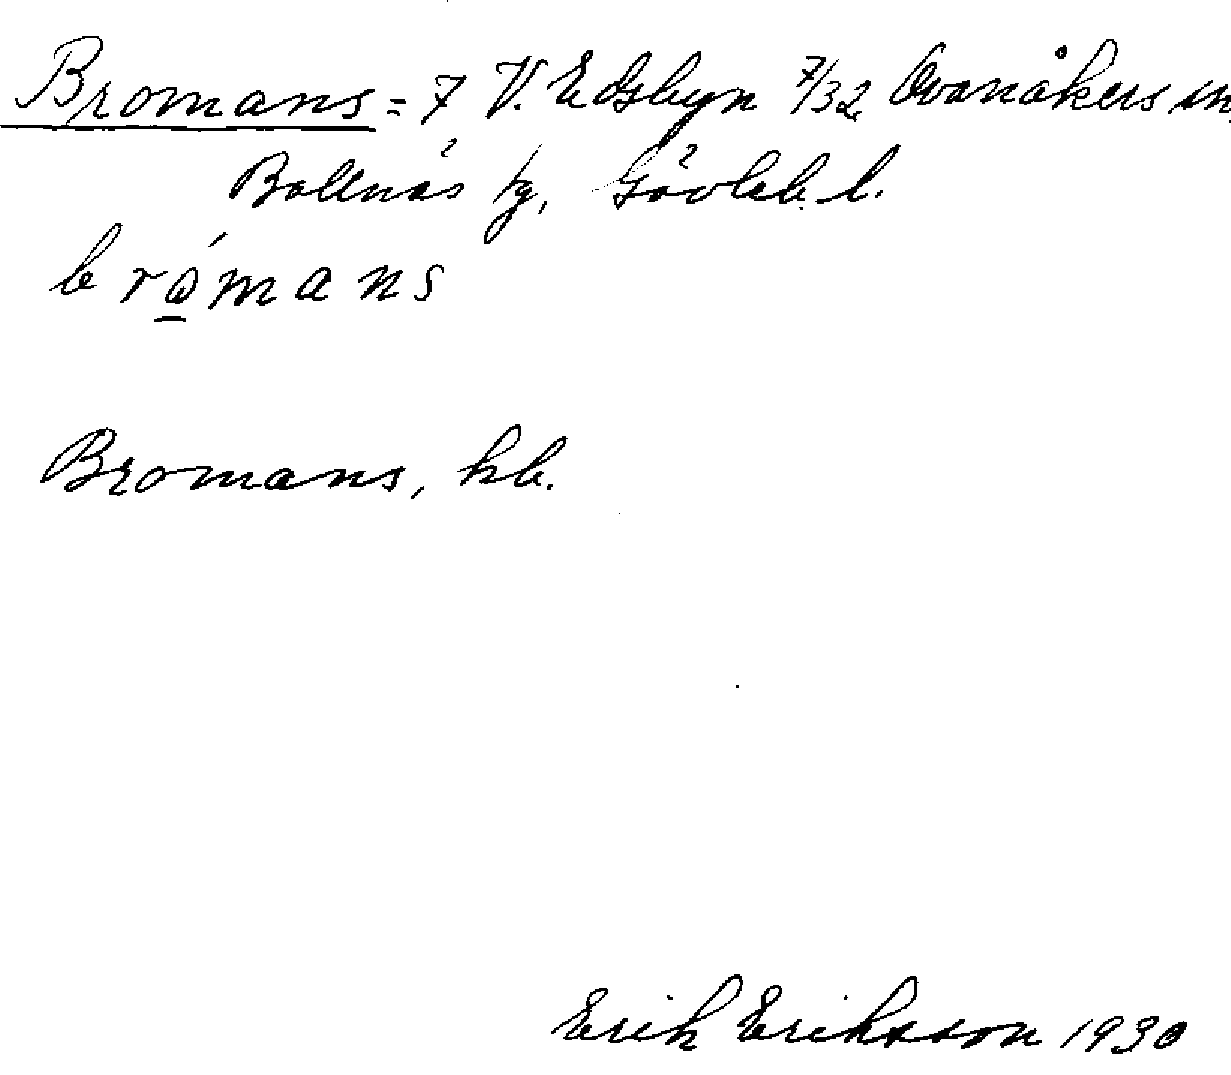 Bromans = 7 V. Edsbyn 7/32 Ovanåkers sn,
Bollnäs tg, Gävleb. l.
b r o̲ ́ m a n s
Bromans, kb.
Erik Eriksson 1930